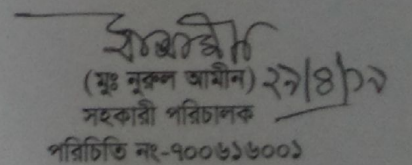 (মুঃ নূরুল আমীন) ২২/৪/১২
সহকারী পরিচালক
পরিচিতি নং-৭০০৬১৬০০১